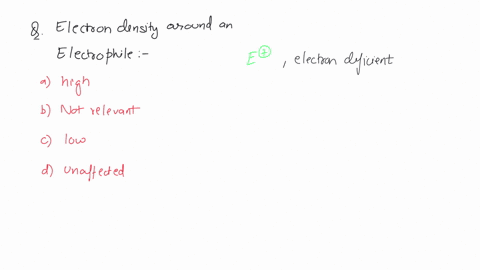 Q. Electron density around an
Electrophile :-
E⊕ , electron deficient
a) high
b) Not relevant
c) low
d) unaffected